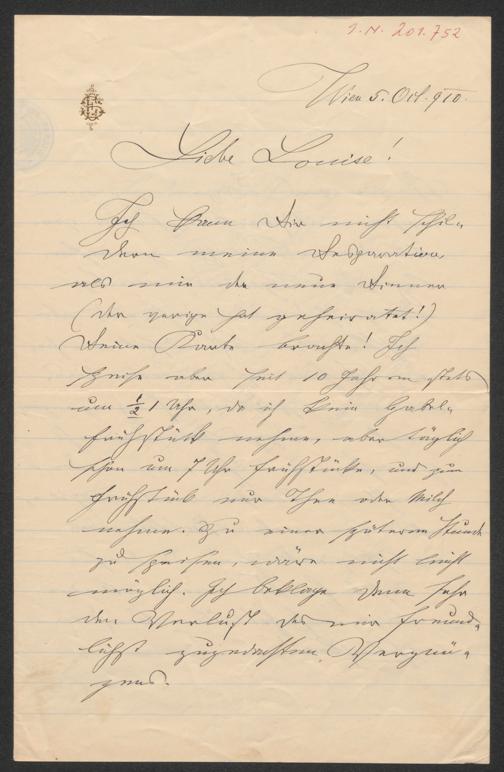 I. N. 201.752
Wien 5. Oct. 910.
Liebe Louise!
Ich kann Dir nicht schil-
dern meine Desparation
als mir der neue Diener
(der vorige hat geheiratet!)
Deine Karte brachte! Ich
speise aber seit 10 Jahren stets
um ½ 1 Uhr, da ich kein Gabel-
frühstück nehme, aber täglich
schon um 7 Uhr frühstücke, und zum
Frühstück nur Thee oder Milch
nehme. Zu einer späteren Stunde
zu speisen, wäre nicht leicht
möglich. Ich beklage denn sehr
den Verlust des mir freund-
lichst zugedachten Vergnü-
gens.